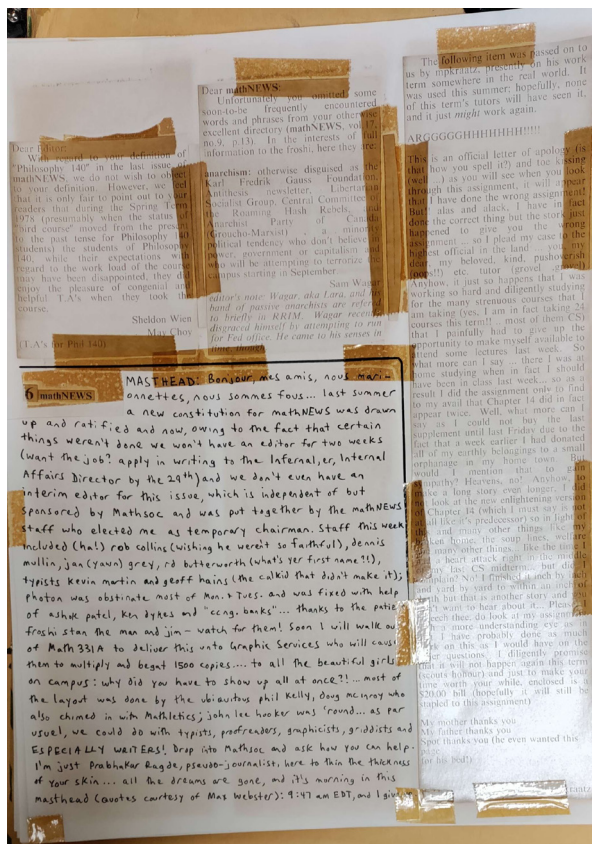 Dear Editor:
With regard to your definition of
"Philosophy 140" in the last issue of
mathNEWS, we do not wish to object
to your definition. However, we feel
that it is only fair to point out to your
readers that during the Spring Term
1978 (presumably when the status of
"bird course" moved from the present
to the past tense for Philosophy 140
students) the students of Philosophy
140, while their expectations with
regard to the work load of the course
may have been disappointed, they did
enjoy the pleasure of congenial and
helpful T.A's when they took the
course.
Sheldon Wien
May Choy
(T.A's for Phil 140)
Dear mathNEWS:
Unfortunately you omitted some
soon-to-be frequently encountered
words and phrases from your otherwise
excellent directory (mathNEWS, vol 17,
no.9, p.13). In the interests of full
information to the froshi, here they are:
anarchism: otherwise disguised as the
Karl Fredrik Gauss Foundation,
Antithesis newsletter, Libertarian
Socialist Group, Central Committee of
the Roaming Hash Rebels, and
Anarchist Party of Canada
(Groucho-Marxist) a minority
political tendency who don't believe in
power, government or capitalism and
who will be attempting to terrorize the
campus starting in September
Sam Wagar
editor's note: Wagar, aka Lard, and his
band of passive anarchists are refered
to briefly in RRIM. Wagar recently
disgraced himself by attempting to run
for Fed office. He came to his senses in
time, though.
The following item was passed on to
us by mpkraatz, presently on his work
term somewhere in the real world. It
was used this summer; hopefully, none
of this term's tutors will have seen it,
and it just might work again.
ARGGGGGHHHHHHH!!!!!
This is an official letter of apology (is
that how you spell it?) and toe kissing
(well....) as you will see when you look
through this assignment, it will appear
that I have done the wrong assignment
But alas and alack, I have in fact
done the correct thing but the stork just
happened to give you the wrong
assignment ... so I plead my case to the
highest official in the land you my
dear, my beloved, kind, pushoverish
(oops!!) etc. tutor (grovel
Anyhow, it just so happens that I was
working so hard and diligently studying
for the many strenuous courses that I
am taking (yes, I am in fact taking 24
courses this term!! ... most of them CS)
that I painfully had to give up the
opportunity to make myself available to
attend some lectures last week. So
what more can I say ... there I was at
home studying when in fact I should
have been in class last week... so as a
result I did the assignment only to find
to my avail that Chapter 14 did in fact
appear twice. Well, what more can I
say as I could not buy the last
supplement until last Friday due to the
fact that a week earlier I had donated
all of my earthly belongings to a small
orphanage in my home town. But
would I mention that to gain
sympathy? Heavens, no! Anyhow, to
make a long story even longer, I did
not look at the new enlightening version
of Chapter 14 (which I must say is not
at all like it's predecessor) so in light of
this and many other things like my
broken home, the soup lines, welfare
and many other things.. like the time I
had a heart attack right in the middle
of my last CS midterm but did I
complain? No! I finished inch by inch
and yard by yard to within an inch of
death but that is another story and you
don't want to hear about it... Please I
beseech thee, do look at my assignment
with a more understanding eye for in
fact I have probably done as much
work on this as I would have on the
proper questions. I diligently promise
that it will not happen again this term
(scouts honour) and just to make your
time worth your while, enclosed is a
$20.00 bill (hopefully it will still be
stapled to this assignment)
My mother thanks you
My father thanks you
Spot thanks you (he even wanted this
page
for his bed!)
6 mathNEWS
MASTHEAD: Bonjour, mes amis, nous mari-
onnettes, nous sommes fous... last summer
a new constitution for mathNEWS was drawn
up and ratified and now, owing to the fact that certain
things weren't done we won't have an editor for two weeks
(want the job? apply in writing to the Infernal,er, Internal
Affairs Director by the 29th) and we don't even have an
interim editor for this issue, which is independent of but
sponsored by Mathsoc and was put together by the mathNEWS
staff who elected me as temporary chairman. Staff this week
included (ha!) rob collins (wishing he weren't so faithful), dennis
mullin, jan (yawn) grey, rd butterworth (what's yer first name?!),
typists kevin martin and geoff hains (the calkid that didn't make it);
photon was obstinate most of Mon. & Tues. and was fixed with help
of ashok patel, ken dykes and "ccng. banks"... thanks to the patient
froshi stan the man and jim - watch for them! Soon I will walk out
of Math 331A to deliver this unto Graphic Services who will cause
them to multiply and begat 1500 copies.... to all the beautiful girls
on campus: why did you have to show up all at once?!... most of
the layout was done by the ubiquitous phil Kelly, doug mcilroy who
also chimed in with Mathletics; john lee hooker was 'round... as per
usuel, we could do with typists, proofreaders, graphicists, griddists and
ESPECIALLY WRITERS! Drop into Mathsoc and ask how you can help.
I'm just Prabhakar Ragde, pseudo-journalist, here to thin the thickness
of your skin... all the dreams are gone, and it's morning in this
masthead (quotes courtesy of Max Webster): 9:47 am EDT, and I give